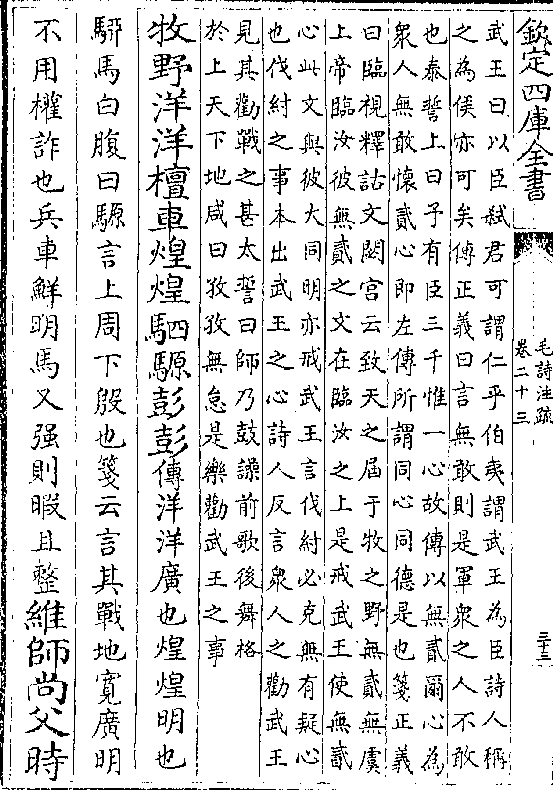 欽定四庫全書
毛詩注疏
卷二十三
三十三
武王曰以臣弑君可謂仁乎伯夷謂武王為臣詩人稱
之為侯亦可矣傳正義曰言無敢則是軍衆之人不敢
也泰誓上曰予有臣三千惟一心故傳以無貳爾心為
衆人無敢懷貳心即左傳所謂同心同德是也箋正義
曰臨視釋詁文閟宫云致天之屆于牧之野無貳無虞
上帝臨汝彼無貳之文在臨汝之上是戒武王使無貳
心此文與彼大同明亦戒武王言伐紂必克無有疑心
也伐紂之事本出武王之心詩人反言衆人之勸武王
見其勸戰之甚太誓曰師乃鼓譟前歌後舞格
於上天下地咸曰孜孜無怠是樂勸武王之事
牧野洋洋檀車煌煌駟騵彭彭傳洋洋廣也煌煌明也
駵馬白腹曰騵言上周下殷也箋云言其戰地寛廣明
不用權詐也兵車鮮明馬又强則暇且整維師尚父時